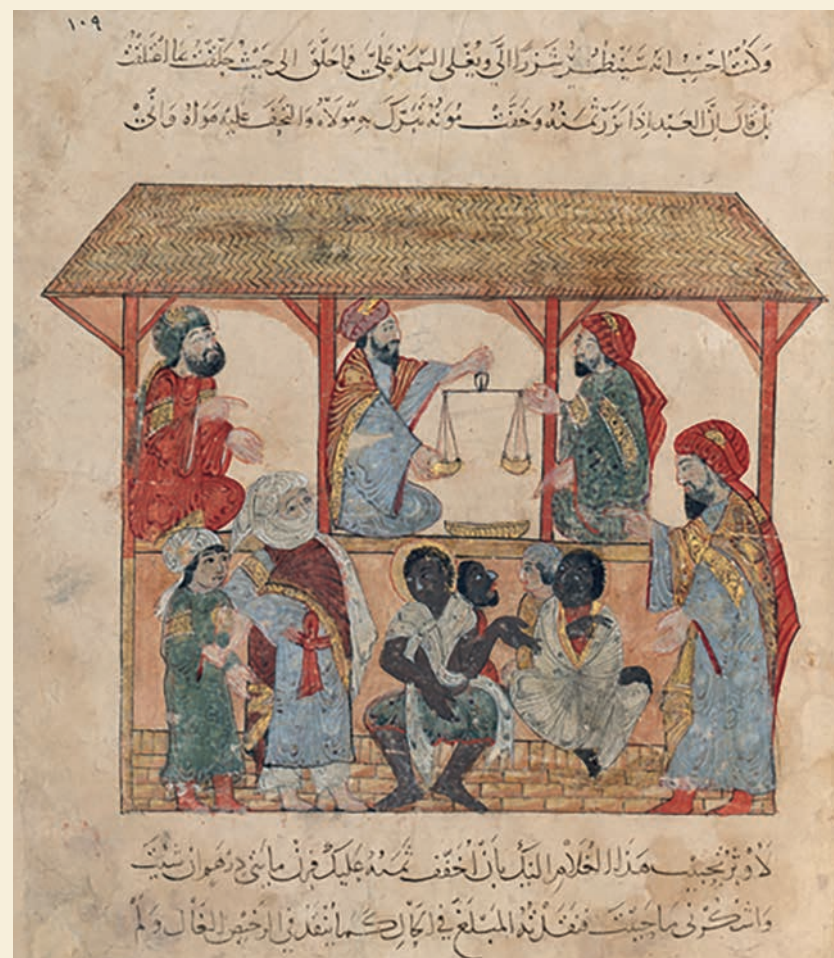 ١٠٩
وَكُنْتُ احْسِبُ انَّهُ سَيَنْظُرُ شَزْرًا الَيَّ وَيُغْلِي السِّيمَةَ عَلَيَّ فَمَا حَلَّقَ الى حَيْثُ حَلَّقْتُ اعْتَلَقْتُ
بَلْ قَالَ اِنَّ العَبْدَ اِذَا نَزُرَ ثَمَنُهُ وَخَفَّتْ مُونُهُ تَبَرَّكَ بِهِ مَوْلَاهُ وَالتَحَفَ عَلَيْهِ هَوَاهُ وَانِّي
لَاُوثِرُ تَحْبِيبَ هَذَا الغُلَامِ اليْكَ بِاَنْ اُخَفِّفَ ثَمَنَهُ عَلَيْكَ فَزِنْ مِايَتَيْ دِرْهَمٍ اِنْ شِئْتَ
وَاشْكُرْنِي مَا حَيِيتَ فَنَقَدْتُهُ المَبْلَغَ فِي الحَالِ كَمَا يُنْقَدُ فِي الرَّخِيصِ وَلَمْ